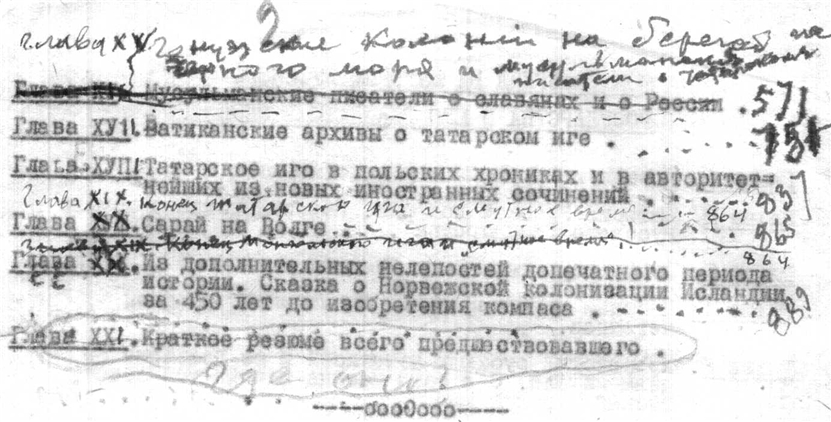 2
Глава XV. Генуэзские колоніи на берегах
Чернаго моря и мусульманские
писатели о
Мусульманские писатели о славянах и о России . 571
Глава ХУ11. Ватиканские архивы о татарском иге . 751
Глава ХУШ. Татарское иго в польских хрониках и в авторитет=
нейших из новых иностранных сочинений . 83
Глава XIX. Конец татарского ига и смутное время 864
Глава XX. Сарай на Волге . 865
Глава XIX. Конец Монгольского ига и "смутное время" 864
Глава XX. Из дополнительных нелепостей допечатного периода
истории. Сказка о Норвежской колонизации Исландии
за 450 лет до изобретения компаса . 889
Глава XXI. Краткое резюме всего предшествовавшего .
Где оно?
----ооо0ооо----